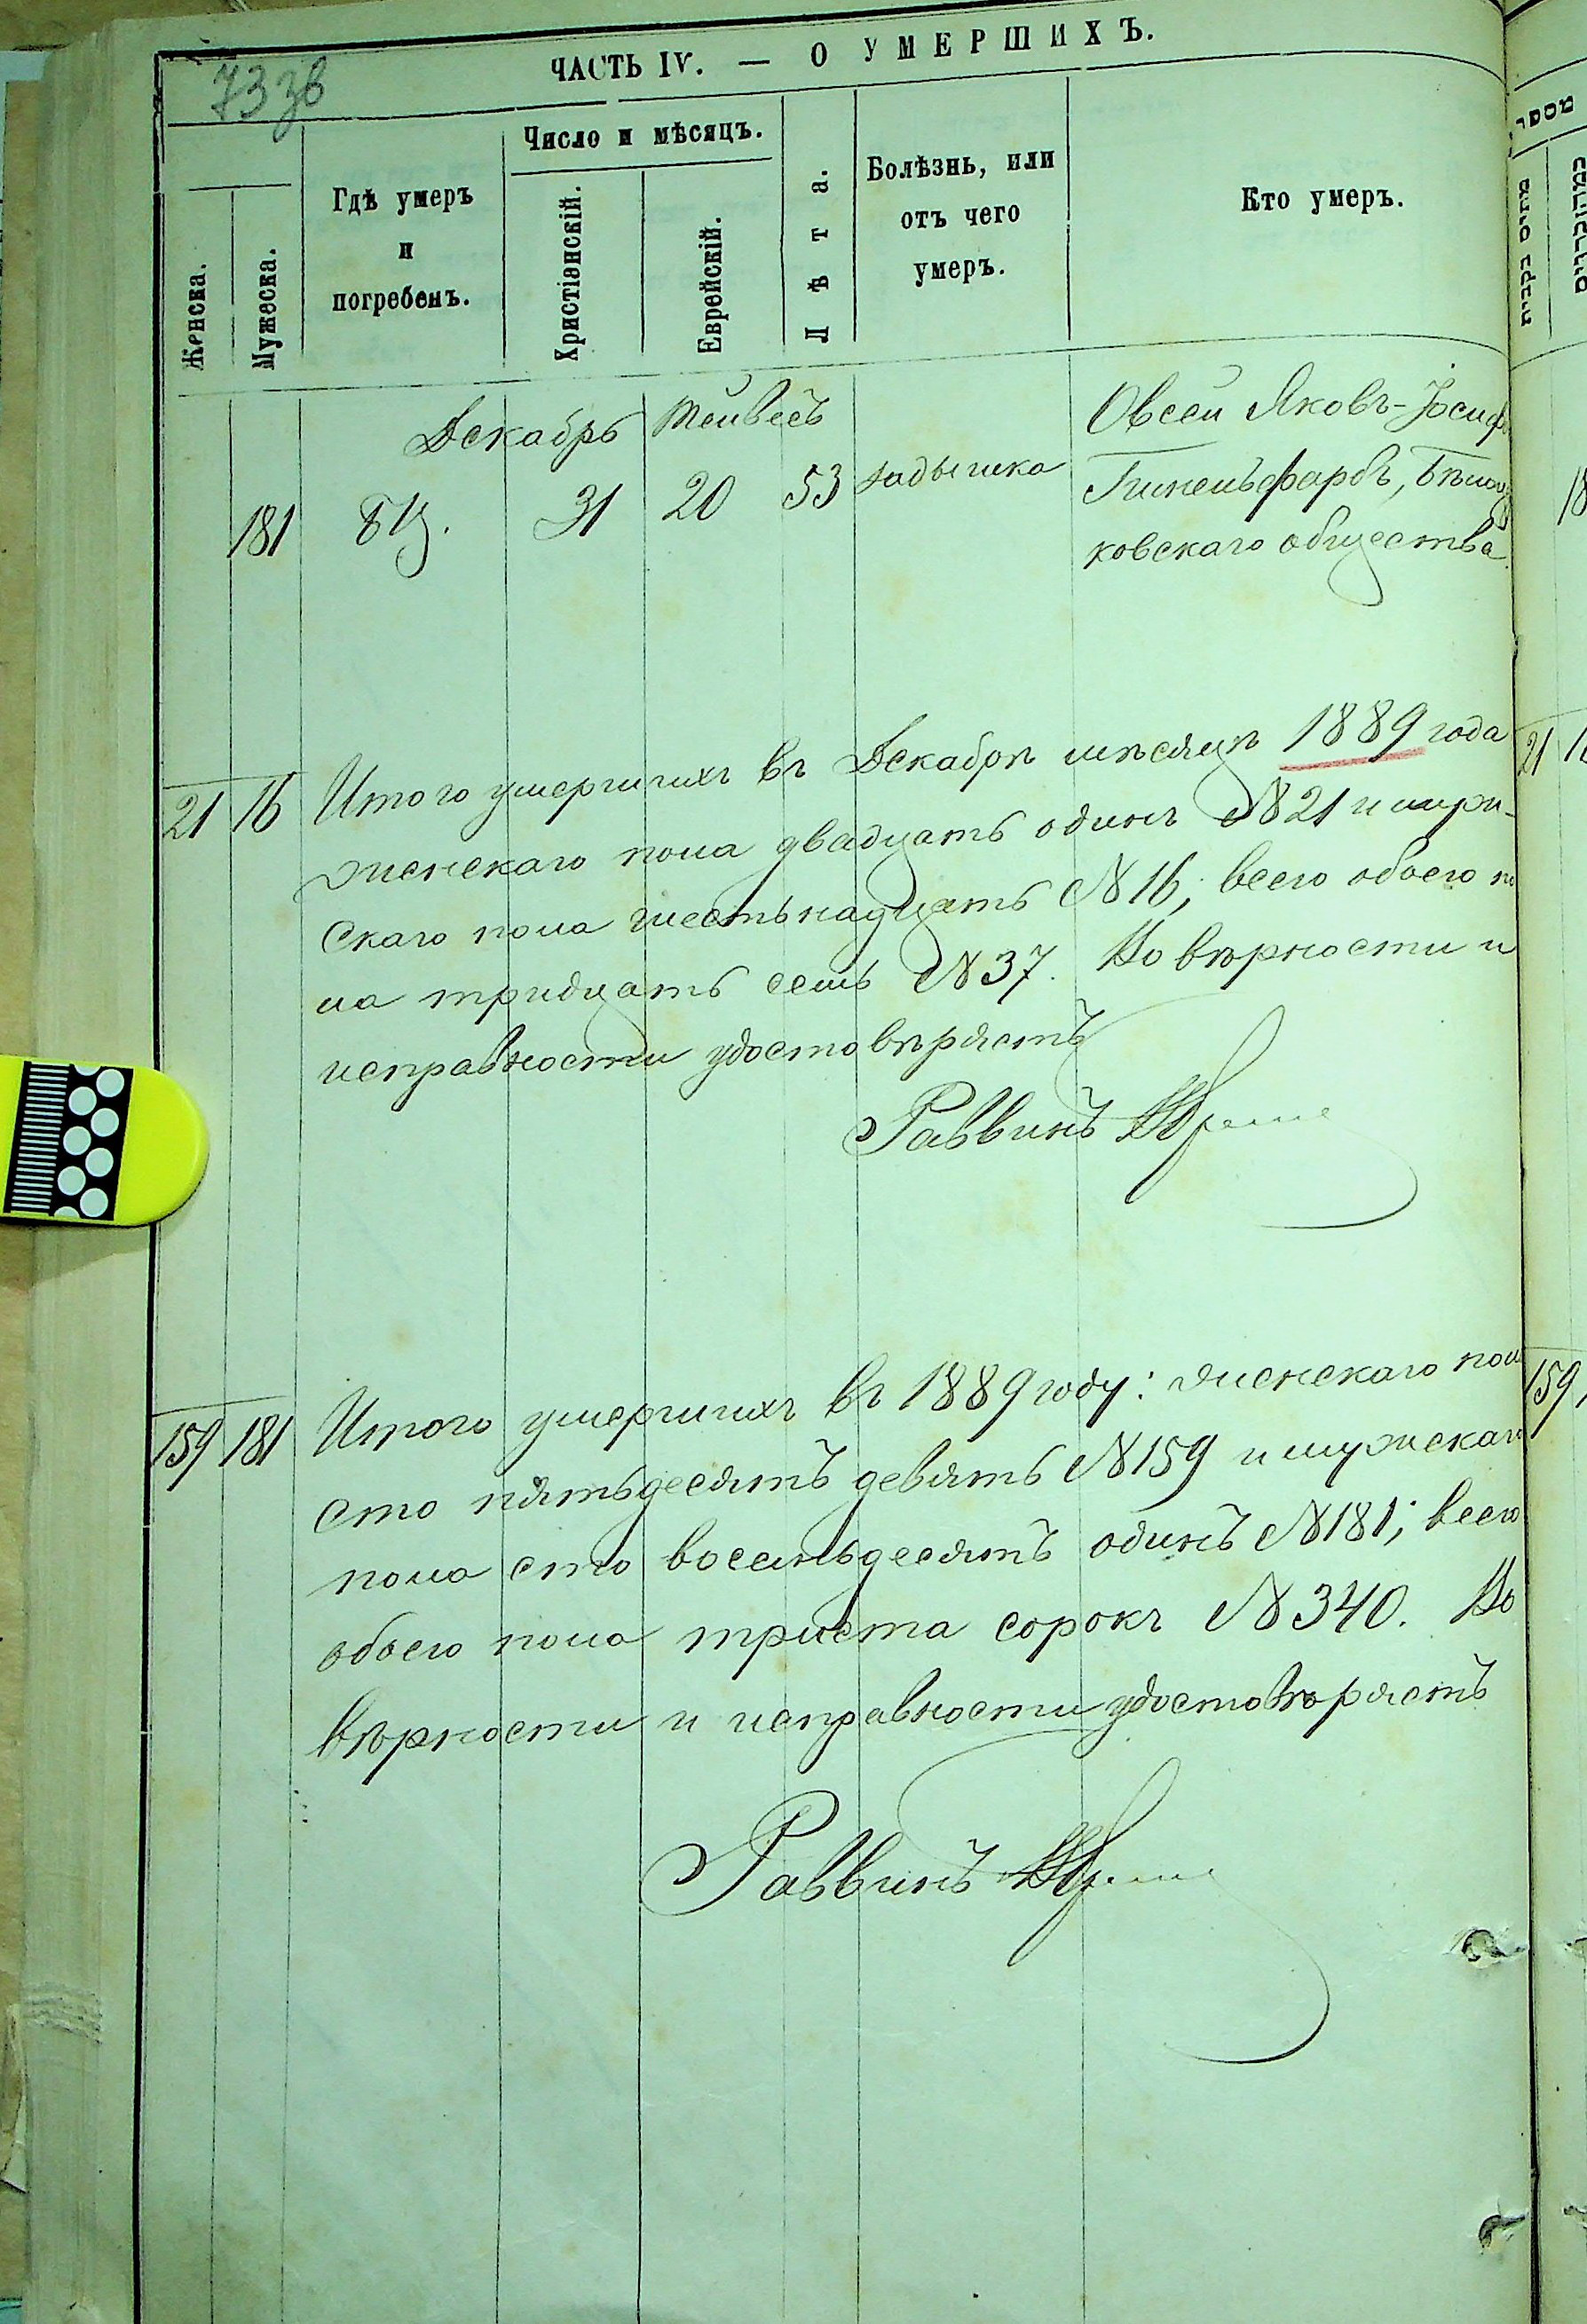 73 зв
ЧАСТЬ IV. — О УМЕРШИХЪ.
Женска.
Мужеска.
Гдѣ умеръ
и
погребенъ.
Число и мѣсяцъ.
Христіанскій.
Еврейскій.
Лѣта.
Болѣзнь, или
отъ чего
умеръ.
Кто умеръ.
Декабрь Тейвесъ
181 31 20 53 задышка
Овсей Яковъ-Іосиф
ковскаго общества
21 16 Итого умершихъ въ Декабрѣ мѣсяцѣ 1889 года
женскаго пола двадцать одинъ №21 и муж-
скаго пола шестьнадцать №16, всего обоего по
ла тридцать семь №37. Во вѣрности и
исправности удостовѣряетъ
Раввинъ
159 181 Итого умершихъ въ 1889 году: женскаго пол
сто пятьдесятъ девять №159 и мужскаго
пола сто восемьдесятъ одинъ №181; всего
обоего пола триста сорокъ №340. Во
вѣрности и исправности удостовѣряетъ
Раввинъ
21
159